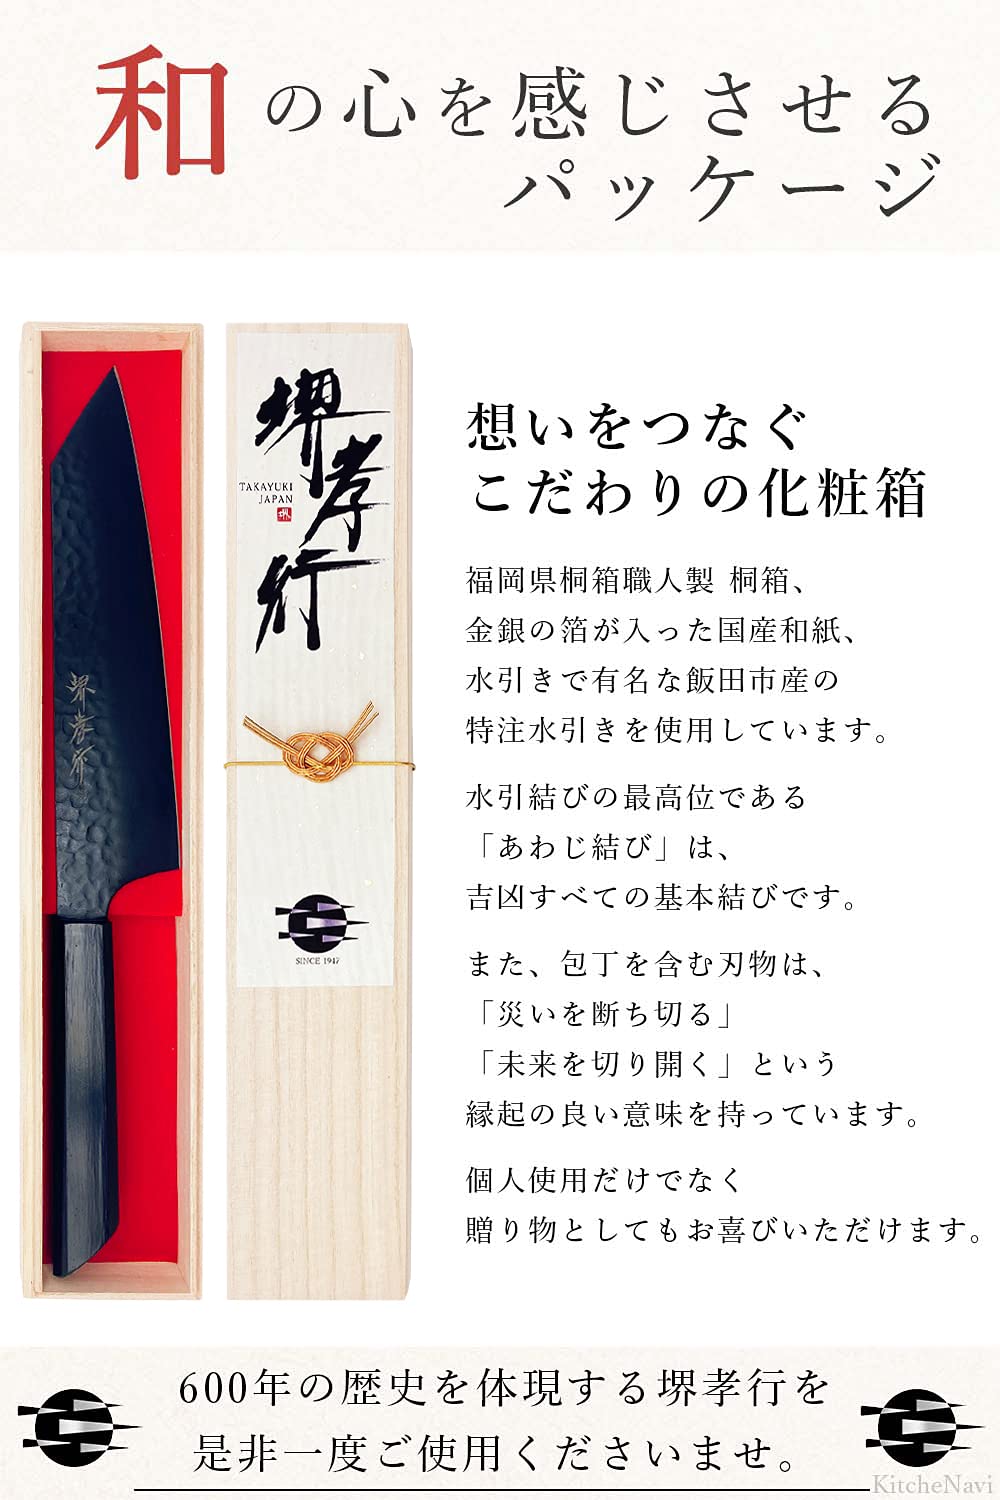 和の心を感じさせる
パッケージ
堺孝行
TAKAYUKI
JAPAN
堺
堺孝行
SINCE 1947
想いをつなぐ
こだわりの化粧箱
福岡県桐箱職人製 桐箱、
金銀の箔が入った国産和紙、
水引きで有名な飯田市産の
特注水引きを使用しています。
水引結びの最高位である
「あわじ結び」は、
吉凶すべての基本結びです。
また、包丁を含む刃物は、
「災いを断ち切る」
「未来を切り開く」という
縁起の良い意味を持っています。
個人使用だけでなく
贈り物としてもお喜びいただけます。
600年の歴史を体現する堺孝行を
是非一度ご使用くださいませ。
KitcheNavi